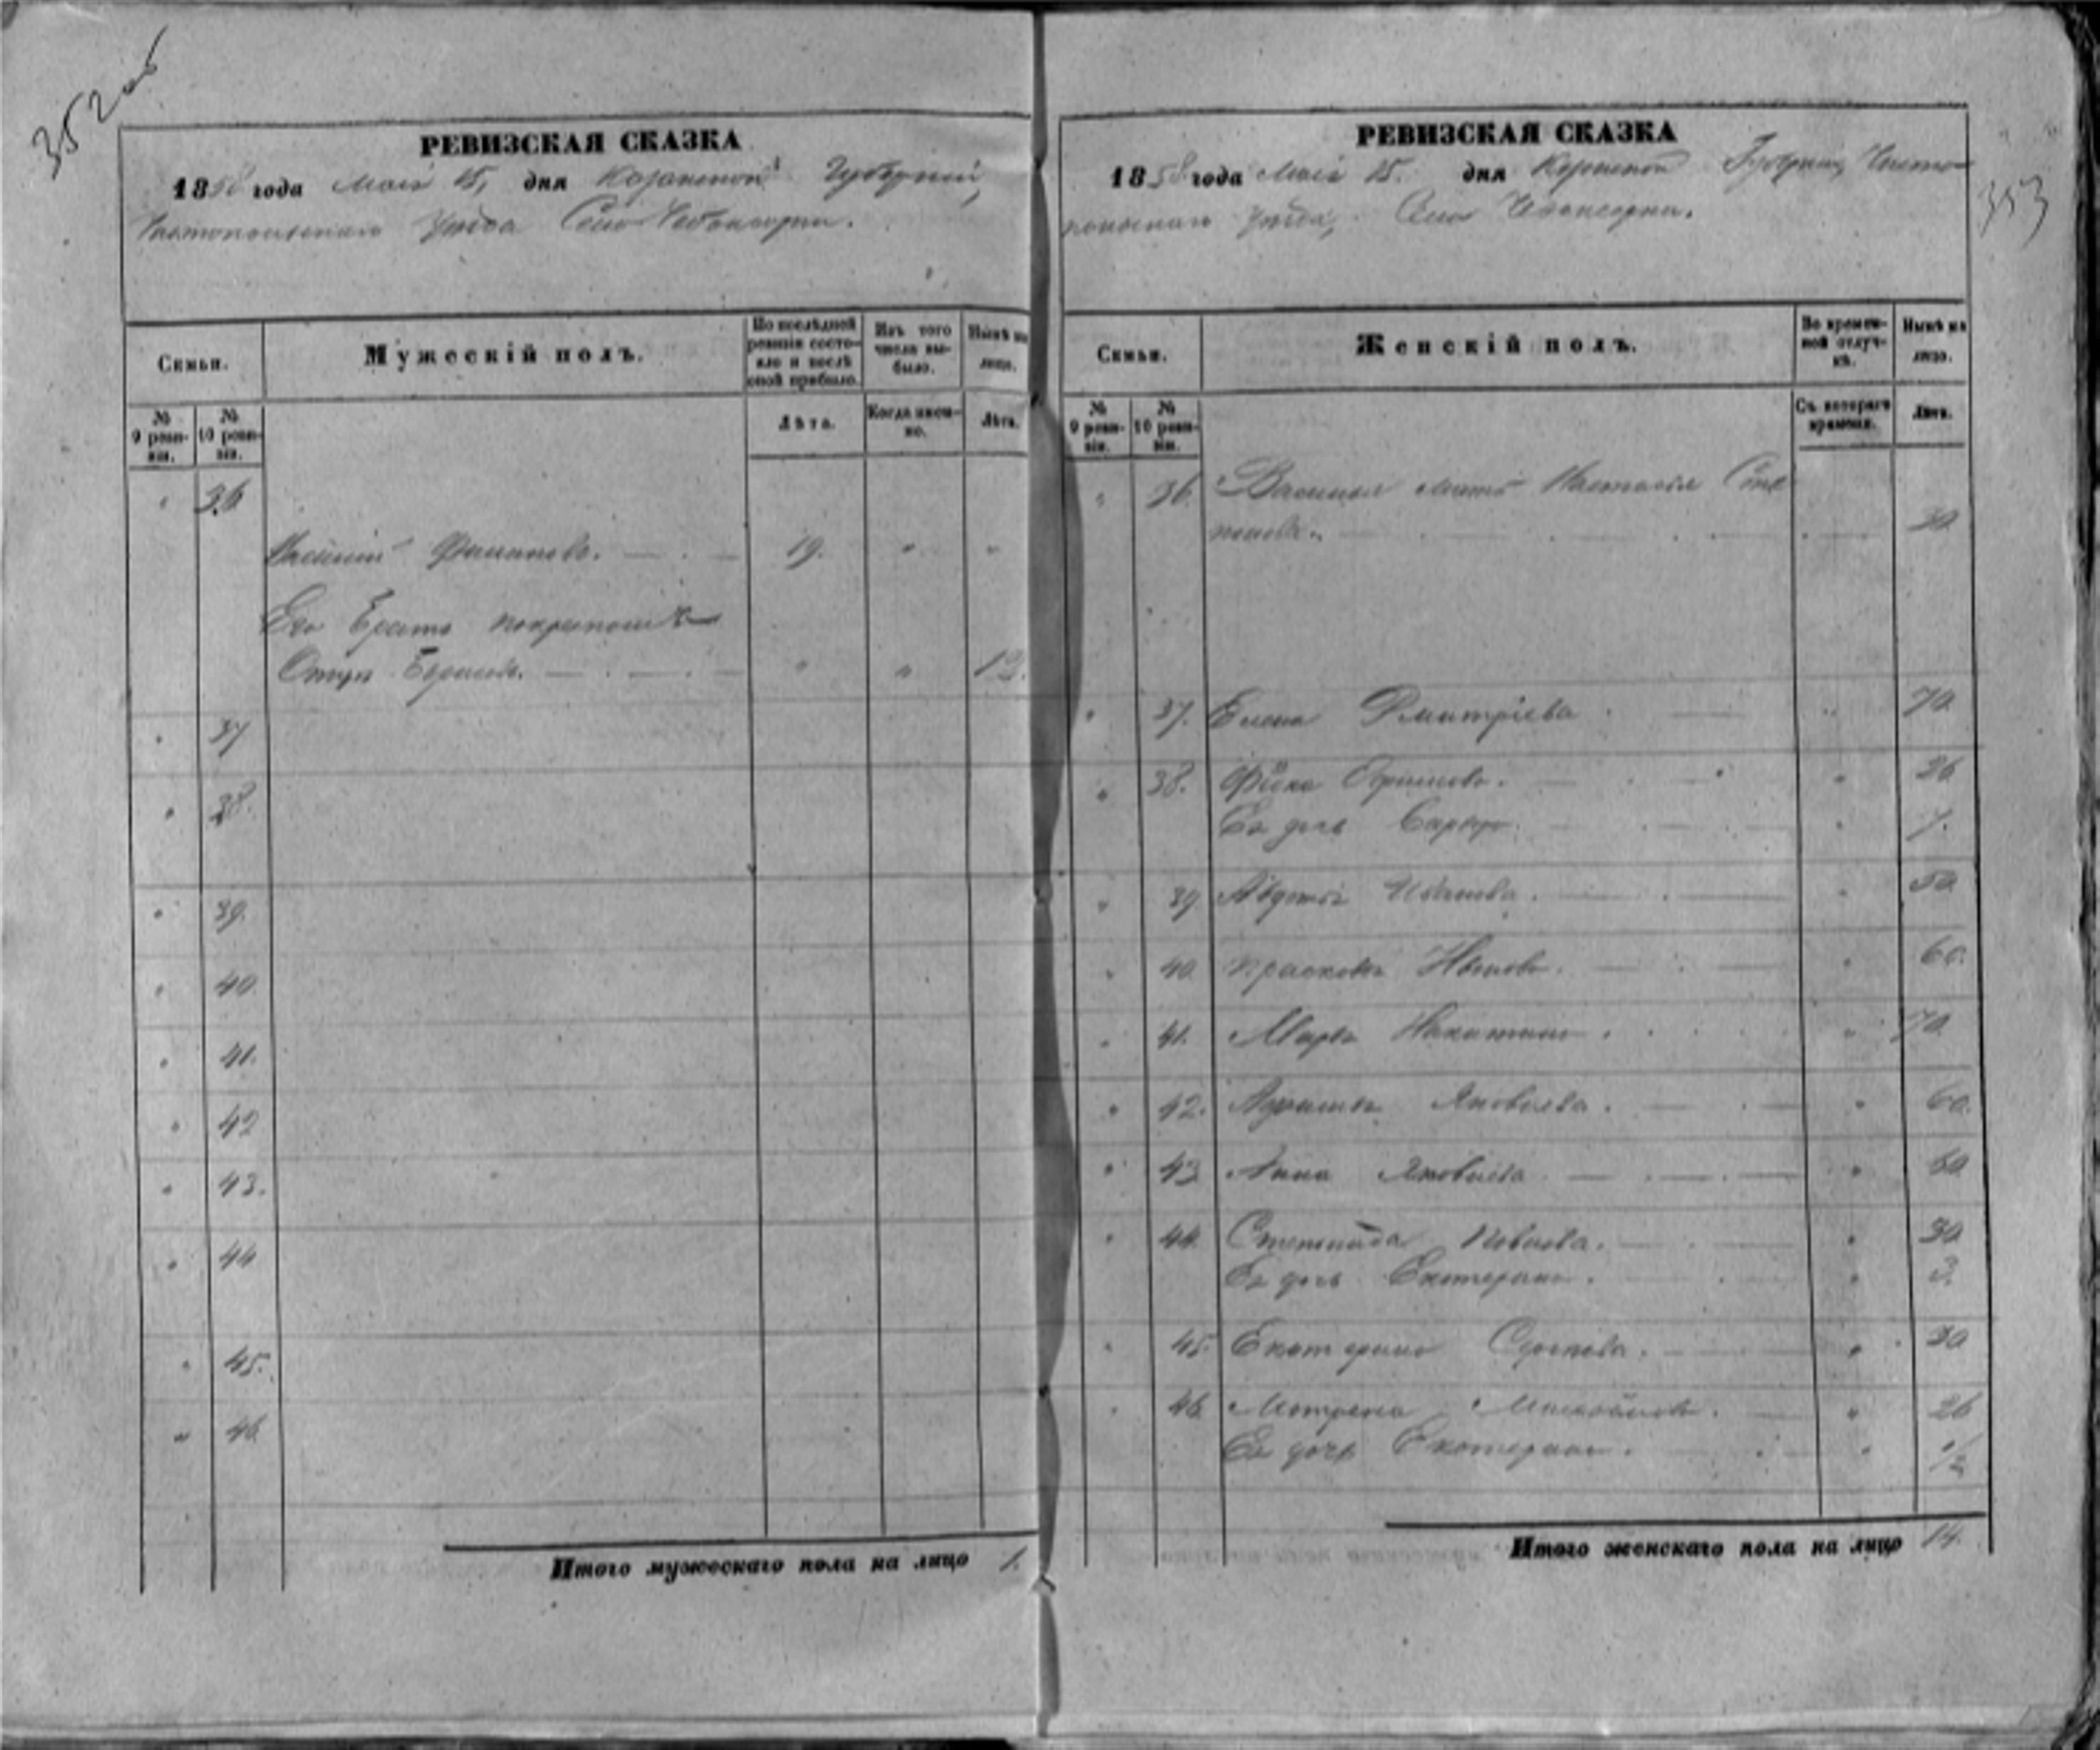 352 об
РЕВИЗСКАЯ СКАЗКА
1858 года Мая 15, дня Казанской Губерніи,
Чистопольскаго Уѣзда Село Чебоксарки.
Семьи.
Мужескій полъ.
По послѣдней ревизіи состояло и послѣ оной прибыло.
Изъ того числа выбыло.
Нынѣ на лицо.
№ 9 ревизіи.
№ 10 ревизіи.
Лѣта.
Когда именно.
Лѣта.
" 36
Василій 19. " "
Его братъ
" " 13.
" 37
" 38.
" 39.
" 40
" 41.
" 42
" 43.
" 44
" 45.
" 46
Итого мужескаго пола на лицо 1.
353
РЕВИЗСКАЯ СКАЗКА
1858 года Мая 15. дня Казанской Губерніи, Чисто-
польскаго Уѣзда, Село Чебоксарки.
Семьи.
Женскій полъ.
Во временной отлучкѣ.
Нынѣ на лицо.
№ 9 ревизіи.
№ 10 ревизіи.
Съ котораго времени.
Лѣта.
" 36. Василья мать Настасья Сте-
панова. 30
" 37. Елена Дмитріева " 70
" 38. Ефимова. " 26
Ея дочь " 7.
" 39 Авдотья Иванова. " 50
" 40 Прасковья " 60.
" 41. Марья Никитина " 70
" 42. Яковлева. " 60.
" 43 Анна Яковлева " 60
" 44 Степанида Павлова. " 30
Ея дочь Екатерина. " 3.
" 45. Екатерина " 30
" 46 Матрена Михайлова. " 26
Ея дочь Екатерина. " 1/2
Итого женскаго пола на лицо 14.